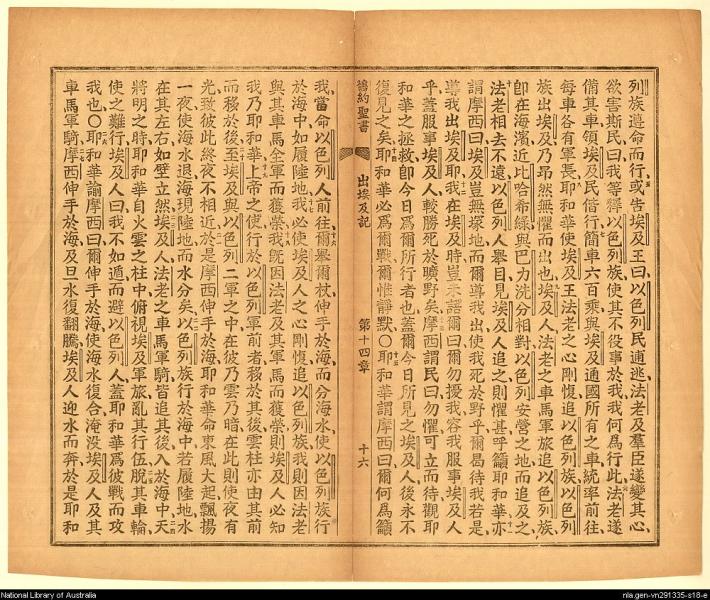 列族遵命而行或告埃及王曰以色列民逋逃法老及羣臣遂變其心
欲害斯民曰我等釋以色列族使其不役事於我我何爲行此法老遂
備其車領埃及民偕行簡車六百乘與埃及通國所有之車統率前往
每車各有軍長耶和華使埃及王法老之心剛愎追以色列族以色列
族出埃及乃昂然無懼而出也埃及人法老之車馬軍旅追以色列族
卽在海濱近比哈希綠與巴力洗分相對以色列安營之地而追及之
法老相去不遠以色列人舉目見埃及人追之則懼甚乎籲耶和華亦
謂摩西曰埃及豈無塚地而爾導我出使我死於野乎爾曷待我若是
導我出埃及耶我在埃及時豈未語爾曰爾勿擾我容我服事埃及人
乎蓋服事埃及人較勝死於曠野矣摩西謂民曰勿懼可立而待觀耶
和華之拯救卽今日爲爾所行者也蓋爾今日所見之埃及人後永不
復見之矣耶和華必爲爾戰爾惟靜默〇耶和華謂摩西曰爾何爲籲
舊約聖書 出埃及記 第十四章 十六
我當命以色列人前往爾舉爾杖伸手於海而分海水使以色列族行
於海中如履陸地我必使埃及人之心剛愎追以色列族我則因法老
與其車馬全軍而獲榮我旣因法老及其車馬而獲榮則埃及人必知
我乃耶和華上帝之使行於以色列軍前者移於其後雲柱亦由其前
而移於後至埃及與以色列二軍之中在彼乃雲乃暗在此則使夜有
光致彼此終夜不相近於是摩西伸手於海耶和華命東風大起飄揚
一夜使海水退海現陸地而水分矣以色列族行於海中若履陸地水
在其左右如壁立然埃及人法老之車馬軍騎皆追其後入於海中天
將明之時耶和華自火雲之柱中俯視埃及軍旅亂其行伍脫其車輪
使之難行埃及人曰我不如遁而避以色列人蓋耶和華爲彼戰而攻
我也〇耶和華諭摩西曰爾伸手於海使海水復合淹没埃及人及其
車馬軍騎摩西伸手於海及旦水復翻騰埃及人迎水而奔於是耶和
National Library of Australia
nla.gen-vn291335-s18-e